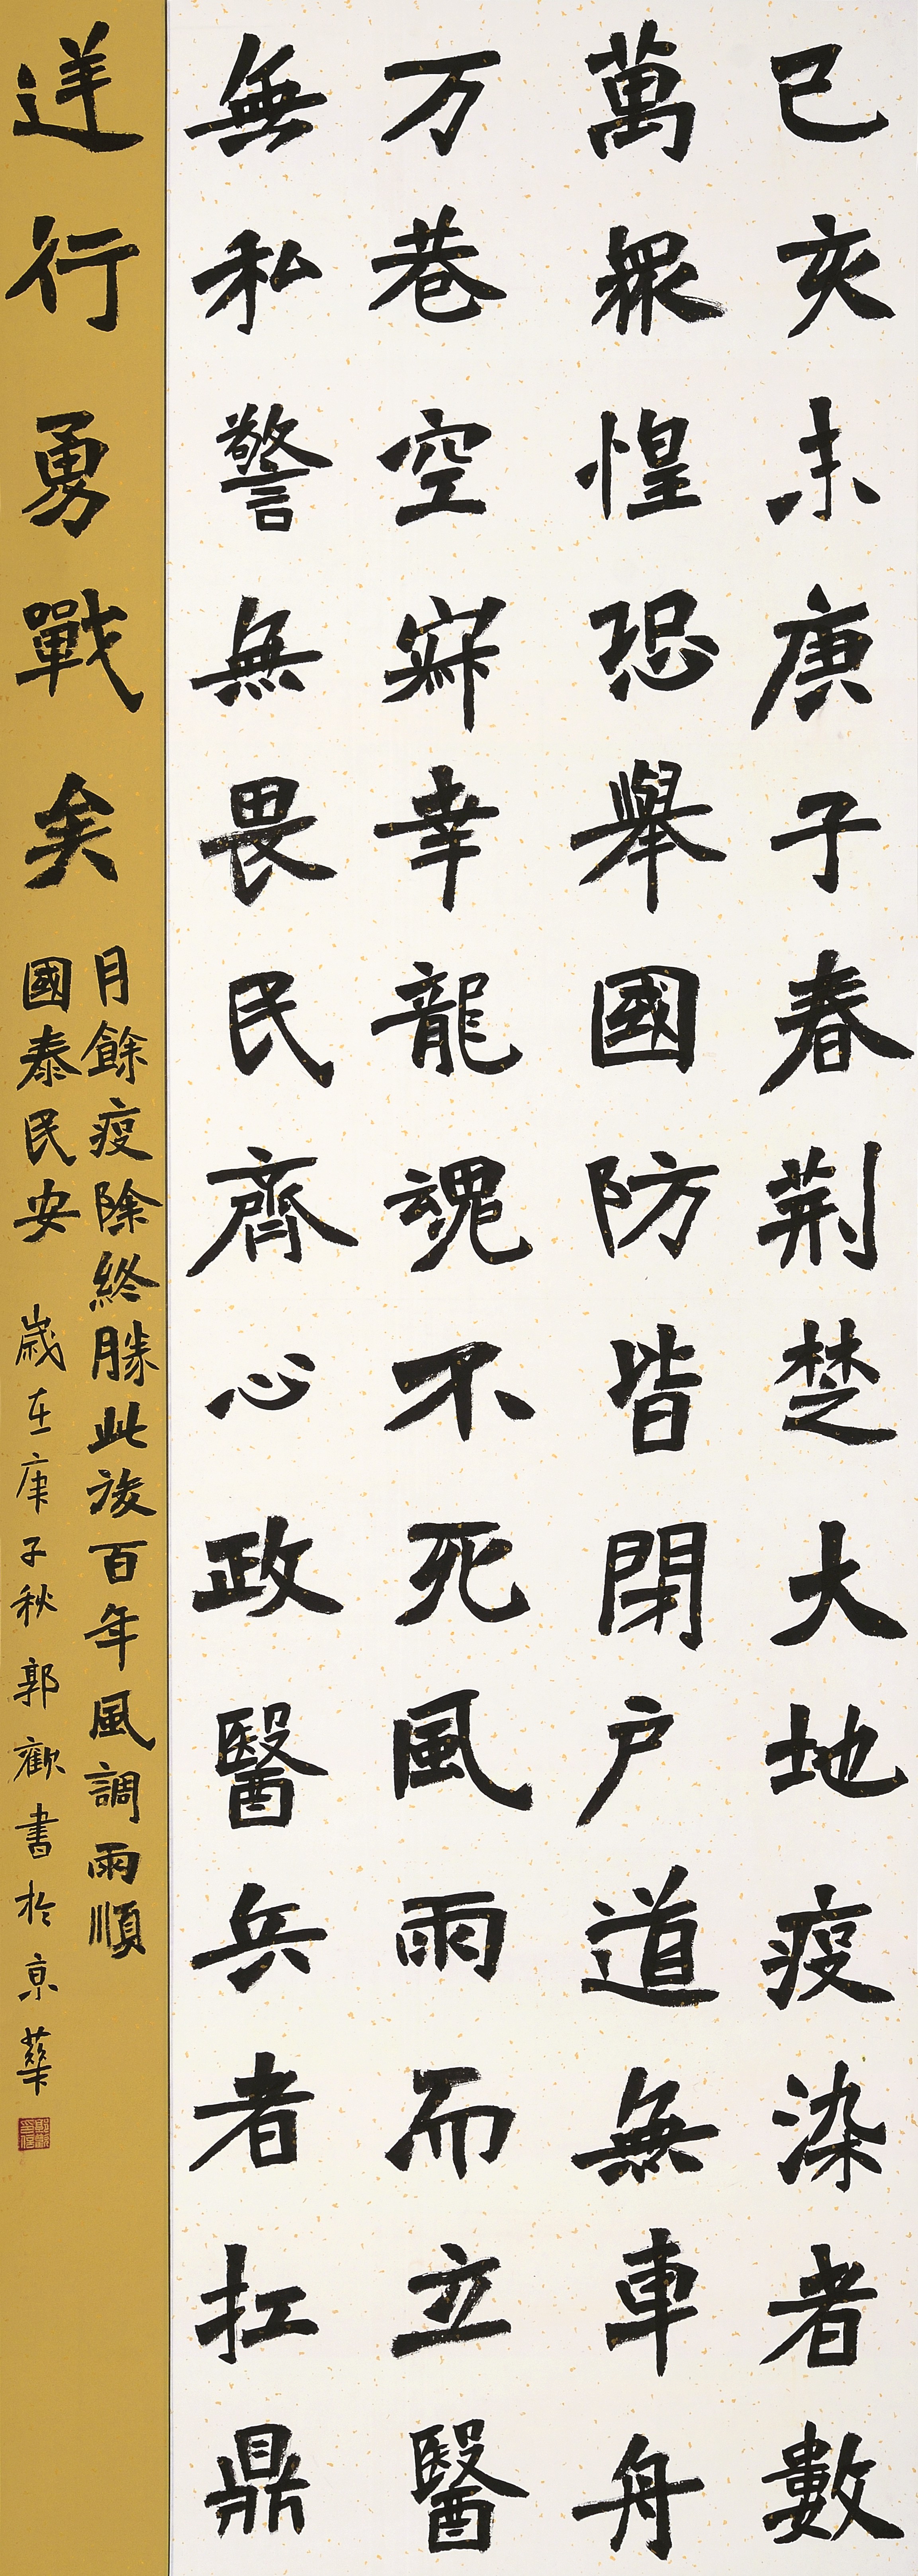 已亥末庚子春荆楚大地疫染者數
萬衆惶恐舉國防皆閉户道無車舟
万巷空寂幸龍魂不死風雨而立醫
無私警無畏民齊心政醫兵者扛鼎
逆行勇戰矣
月餘疫除終勝此後百年風調雨順
國泰民安 歲在庚子秋 郭歡書於京華